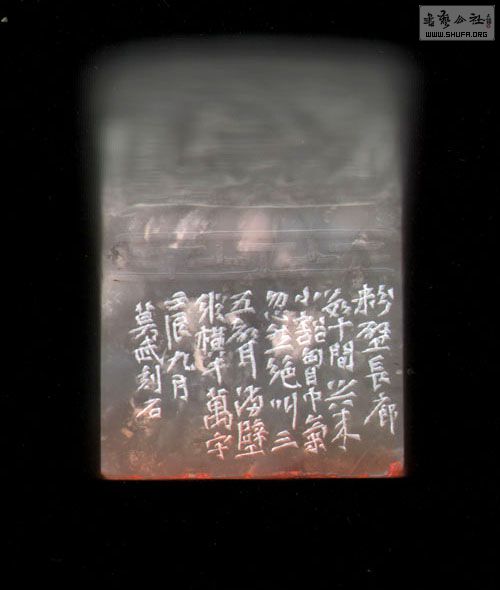 書藝公社
WWW.SHUFA.ORG
粉壁長廊
数十間兴来
小豁胸中氣
忽然絕叫三
五聲满壁
縱橫千萬字
壬辰九月
莫武刻石